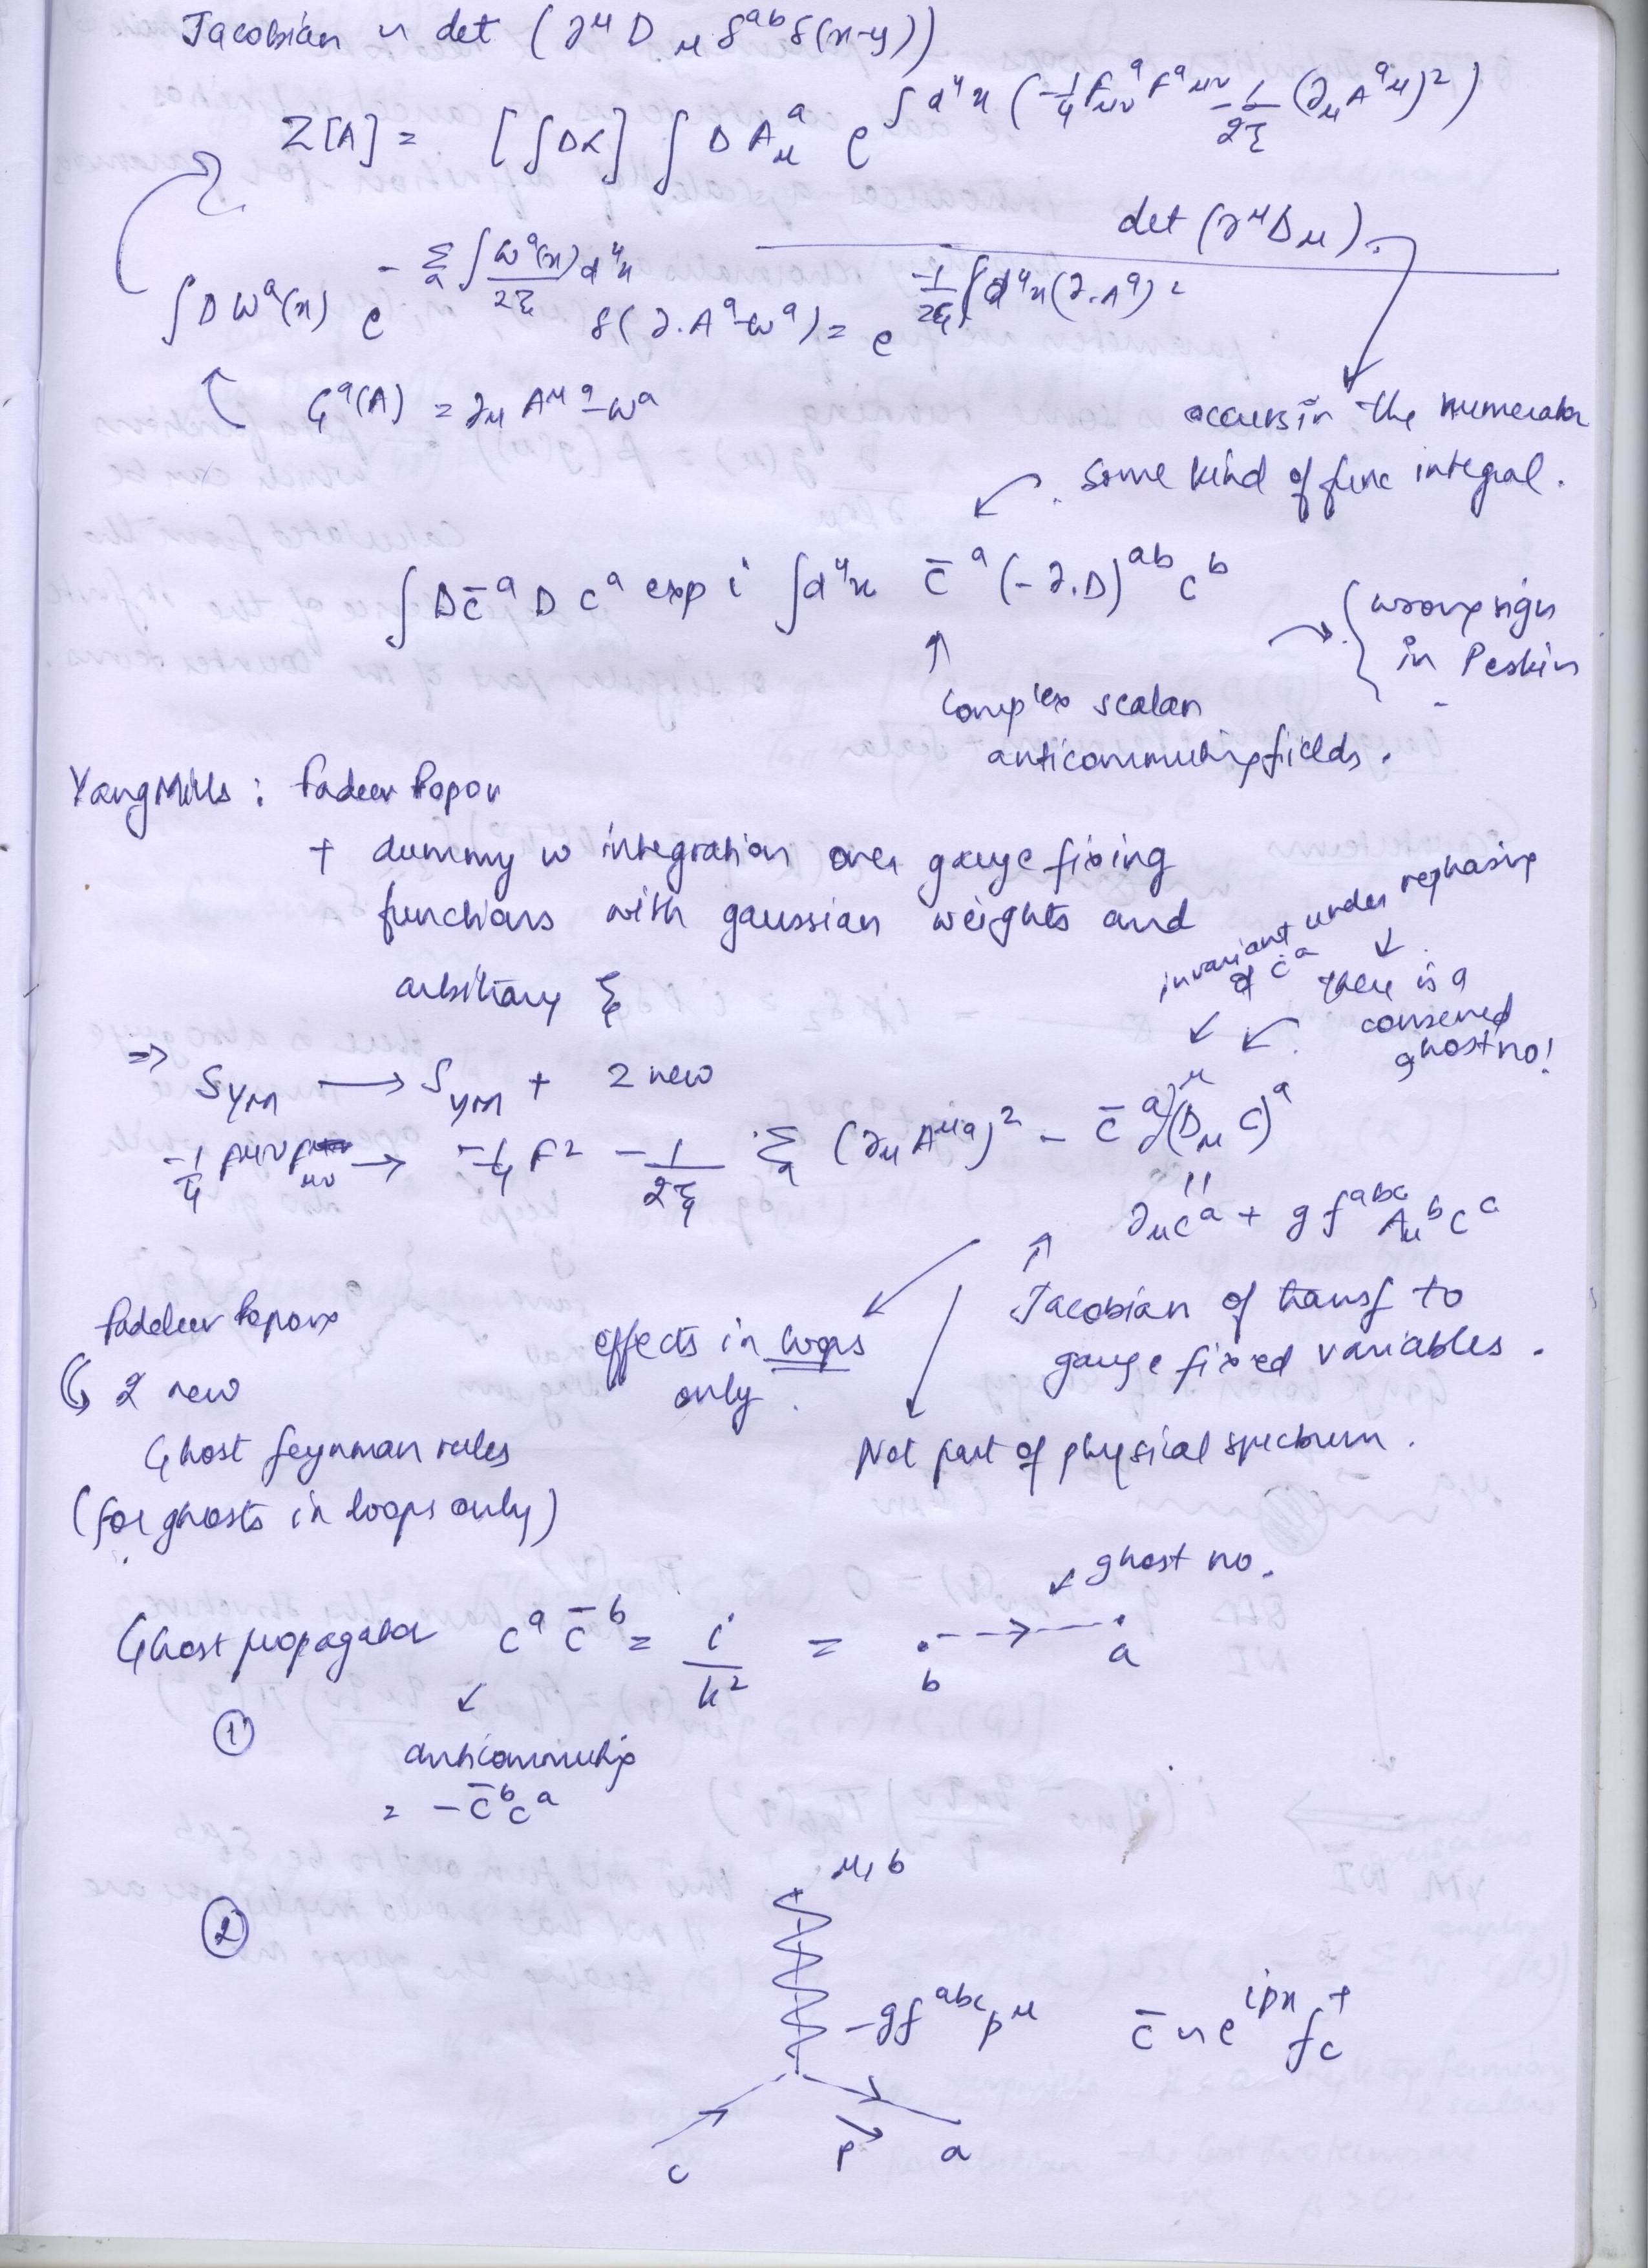 Jacobian ~ det (∂^μ D_μ δ^{ab} δ(x-y))
Z[A] = [∫Dα] ∫ D A^a_μ e^{∫d⁴x (-1/4 F^a_{μν} F^{aμν} - 1/2ξ (∂_μ A^{aμ})²)}
det (∂^μ D_μ).
∫Dω^a(x) e^{-Σ_a ∫ ω^a(x)/2ξ d⁴x} δ(∂.A^a-ω^a) = e^{-1/2ξ ∫d⁴x(∂.A^a)²}
G^a(A) = ∂_μ A^{μa} - ω^a
occurs in the numerator
some kind of func integral.
∫Dc̄^a D c^a exp i ∫d⁴x c̄^a (-∂.D)^{ab} c^b
wrong sign
in Peskin
complex scalar
anticommuting fields.
Yang Mills : Fadeev Popov
+ dummy ω integration over gauge fixing
functions with gaussian weights and
arbitrary ξ
invariant under rephasing
of c^a
there is a
conserved
ghost no!
⇒ S_{YM} → S_{YM} + 2 new
-1/4 F^{μν}F_{μν} → -1/4 F² - 1/2ξ Σ_a (∂_μ A^{μa})² - c̄^a ∂^μ(D_μ c)^a
∂_μ c^a + g f^{abc} A_μ^b c^c
Fadeev Popov
2 new
Ghost feynman rules
(for ghosts in loops only)
effects in loops
only.
Jacobian of transf to
gauge fixed variables.
Not part of physical spectrum.
ghost no.
Ghost propagator c^a c̄^b = i/k² =
b a
①
anticommuting
= -c̄^b c^a
②
μ, b
-gf^{abc} p^μ c̄ ~ e^{ipx} f_c^†
c p a